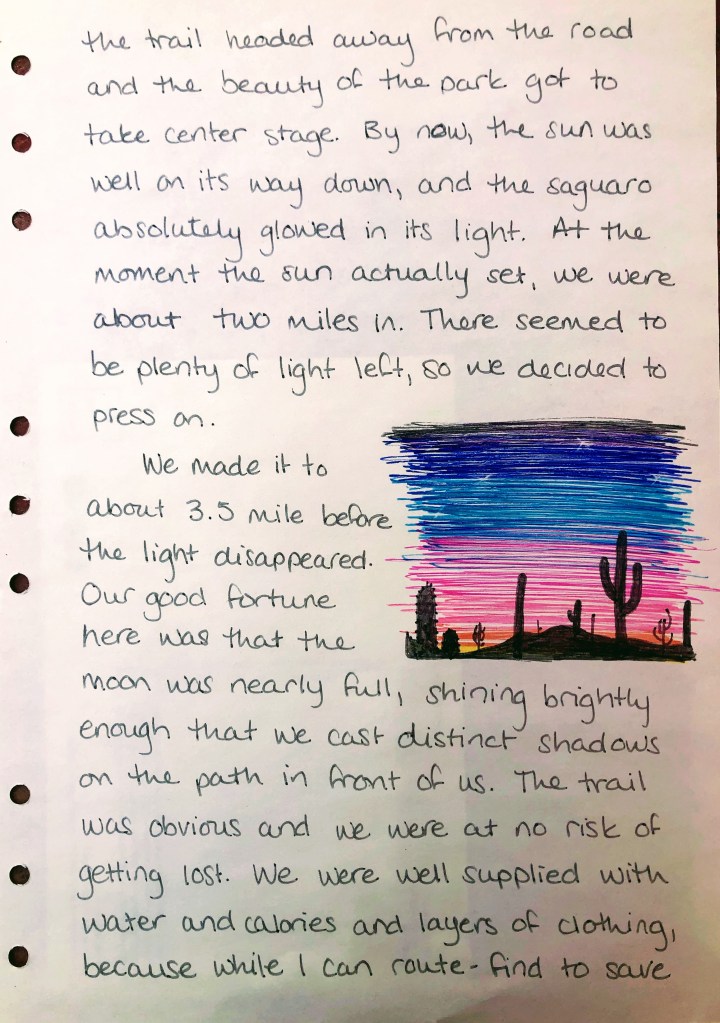 the trail headed away from the road
and the beauty of the park got to
take center stage. By now, the sun was
well on its way down, and the saguaro
absolutely glowed in its light. At the
moment the sun actually set, we were
about two miles in. There seemed to
be plenty of light left, so we decided to
press on.
We made it to
about 3.5 mile before
the light disappeared.
Our good fortune
here was that the
moon was nearly full, shining brightly
enough that we cast distinct shadows
on the path in front of us. The trail
was obvious and we were at no risk of
getting lost. We were well supplied with
water and calories and layers of clothing,
because while I can route-find to save